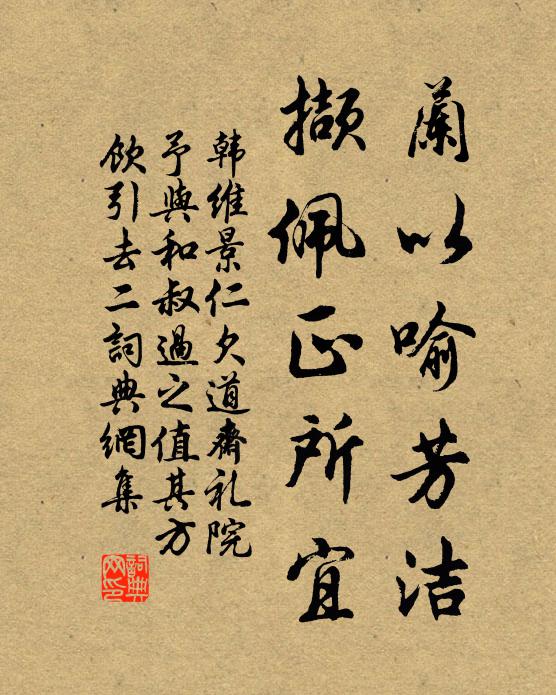 蘭以喻芳洁
撷佩正所宜
韩维景仁久道齋礼院
予與和叔過之值其方
飲引去二詞典網集
詞典网印